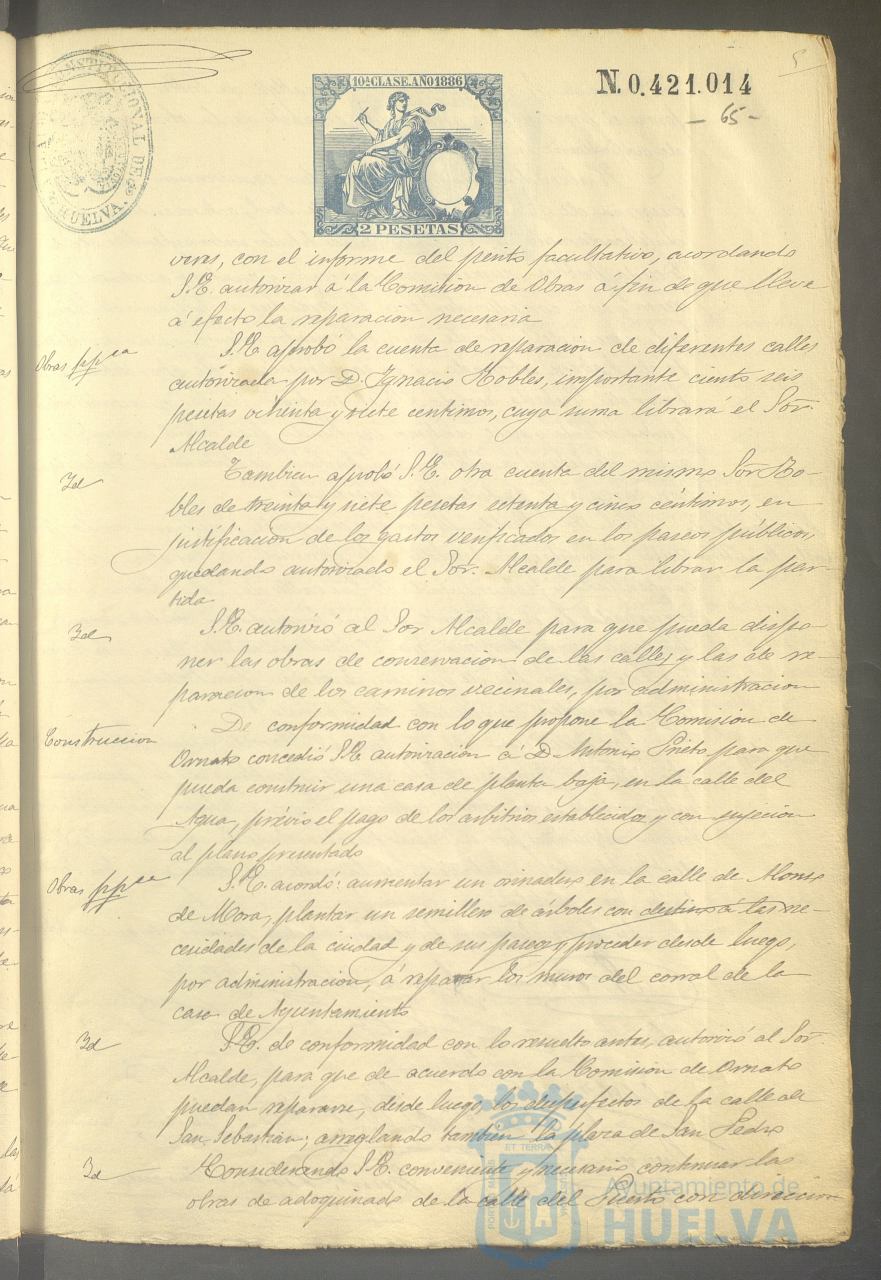 CONSTITUCIONAL DE HUELVA.
10ª CLASE. AÑO 1886
2 PESETAS
N. 0.421.014
- 65 -
5
veras, con el informe del perito facultativo, acordando
S.E. autorizar á la Comision de Obras á fin de que lleve
á efecto la reparacion necesaria
Obras ppcas
S.E. aprobó la cuenta de reparacion de diferentes calles
autorizada por D. Ignacio Robles, importante ciento seis
pesetas ochenta y siete centimos, cuya suma librará el Sor.
Alcalde
Id
Tambien aprobó S.E. otra cuenta del mismo Sor Ro-
bles de treinta y siete pesetas setenta y cinco céntimos, en
justificacion de los gastos verificados en los paseos públicos,
quedando autorizado el Sor. Alcalde para librar la par-
tida
Id
S.E. autorizó al Sor Alcalde para que pueda dispo-
ner las obras de conservacion de las calles y las de re-
paracion de los caminos vecinales, por administracion
Construccion
De conformidad con lo que propone la Comision de
Ornato concedió S.E. autorizacion á D. Antonio Prieto para que
pueda construir una casa de planta baja, en la calle del
Agua, prévio el pago de los arbitrios establecidos y con sujecion
al plano presentado
Obras ppcas
S.E. acordó: aumentar un orinadero en la calle de Alonso
de Mora, plantar un semillero de árboles con destino á las ne-
cesidades de la ciudad y de sus paseos y proceder desde luego,
por administracion, á reparar los muros del corral de la
casa de Ayuntamiento
Id
S.E. de conformidad con lo resuelto antes, autorizó al Sor
Alcalde, para que de acuerdo con la Comision de Ornato
puedan repararse, desde luego, los desperfectos de la calle de
San Sebastian; arreglando tambien la plaza de San Pedro
Id
Considerando S.E. conveniente y necesario continuar las
obras de adoquinado de la calle del Puerto con direccion
ET TERRA
Ayuntamiento de
HUELVA